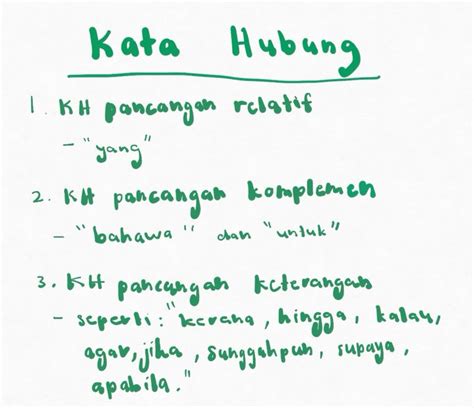 Kata Hubung
1. KH pancangan relatif
- "yang"
2. KH pancangan komplemen
- "bahawa" dan "untuk"
3. KH pancangan keterangan
- seperti : "kerana, hingga, kalau,
agar, jika, sunggahpun, supaya,
apabila."